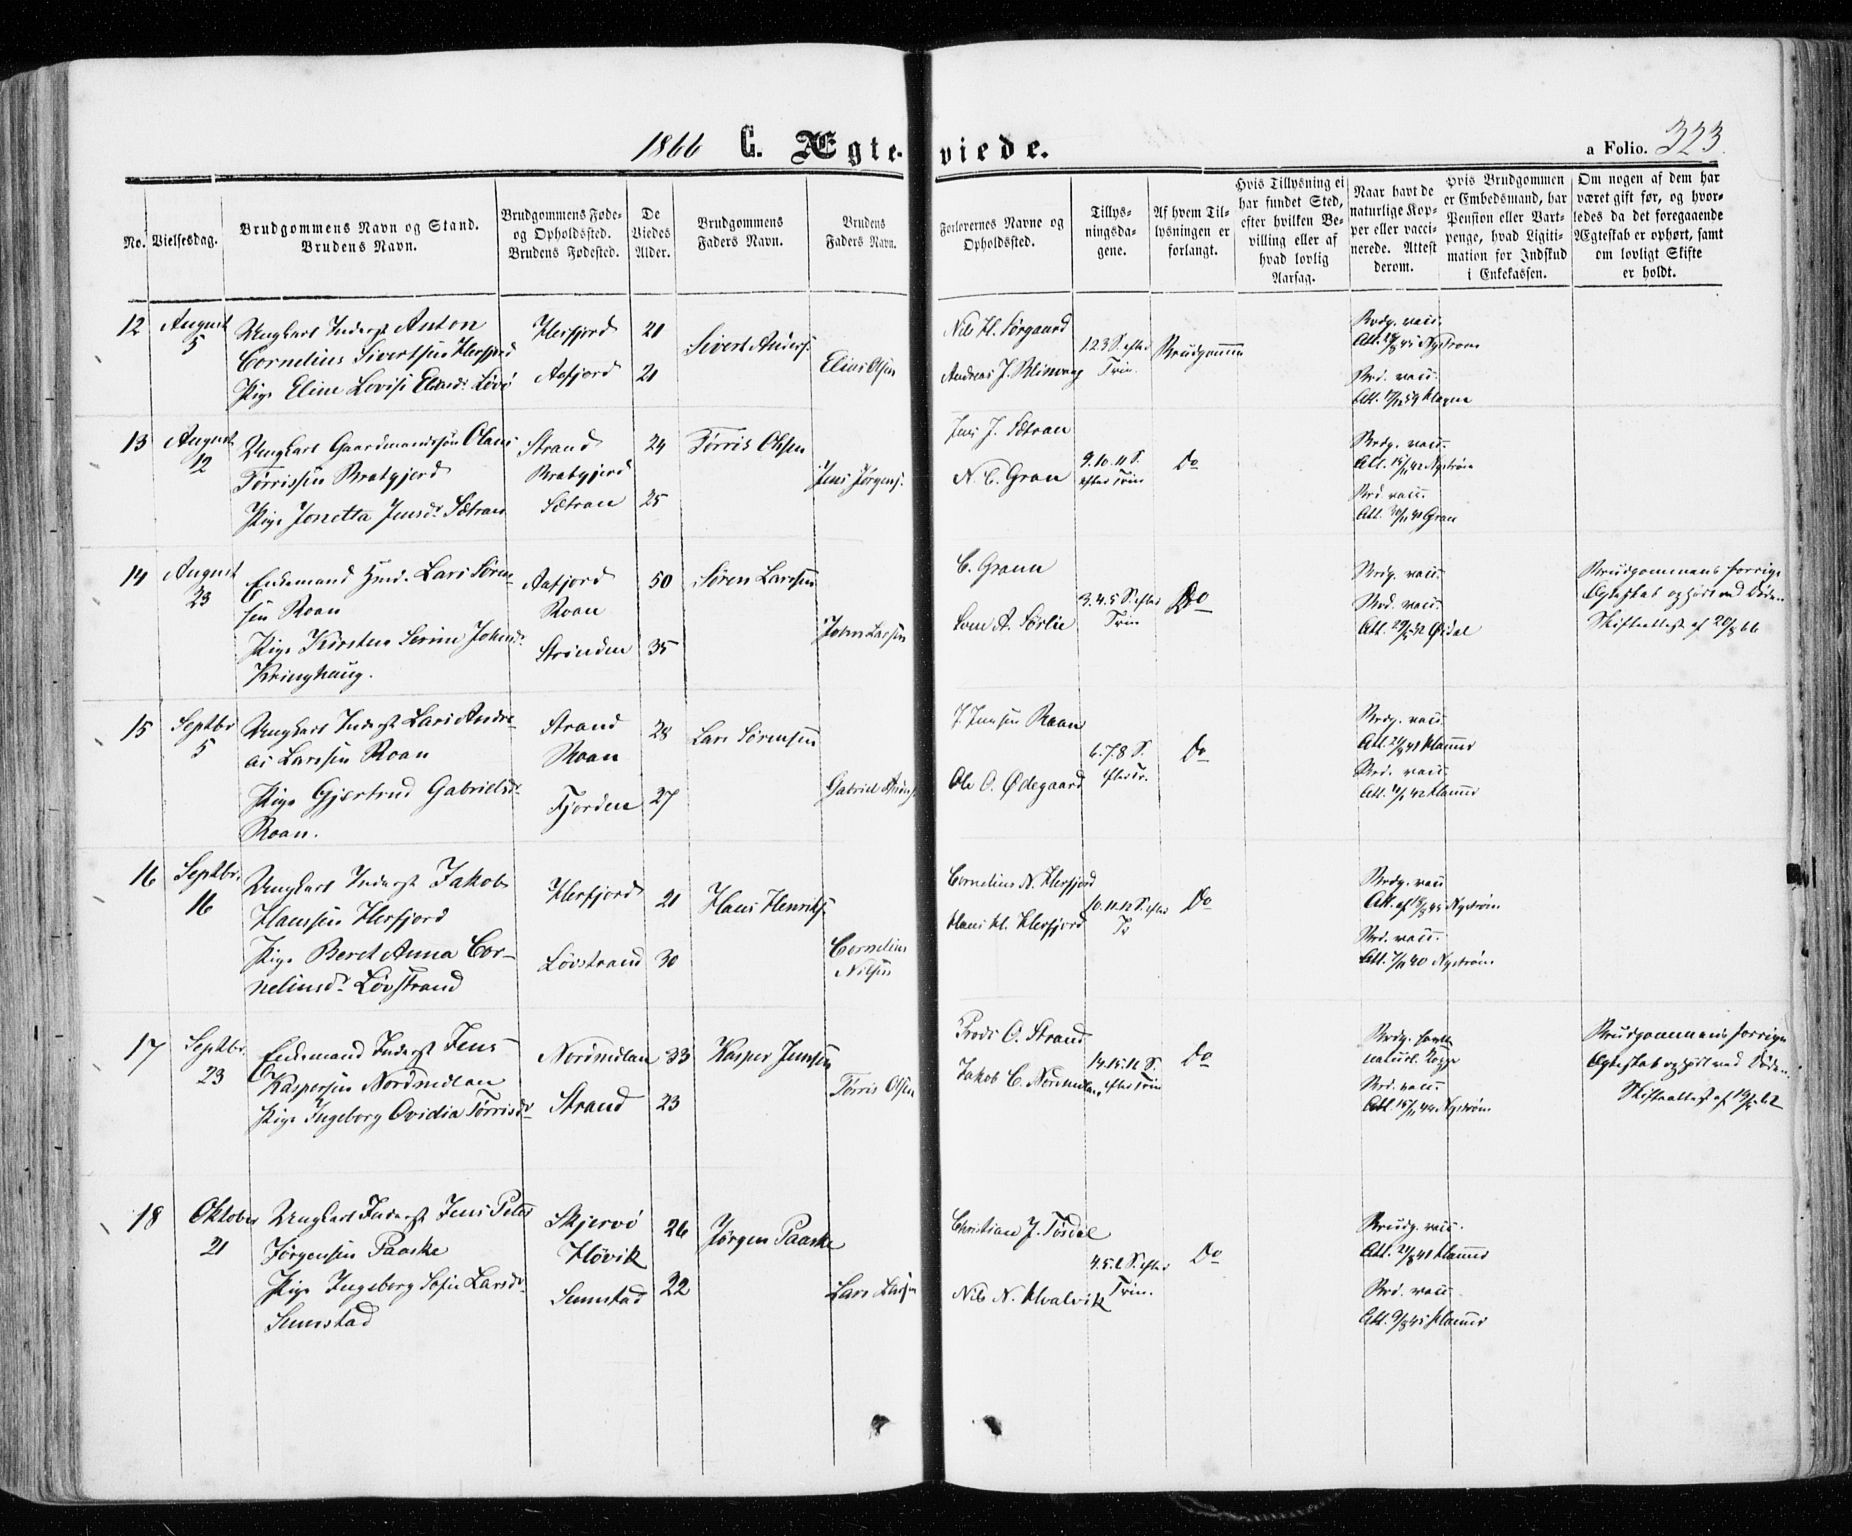 1866 C. Ægteviede.
a Folio. 323.
No.
Vielsesdag.
Brudgommens Navn og Stand.
Brudens Navn.
Brudgommens Føde-
og Opholdssted.
Brudens Fødested.
De
Viedes
Alder.
Brudgommens
Faders Navn.
Brudens
Faders Navn.
Forlovernes Navne og
Opholdssted.
Tillys-
ningsda-
gene.
Af hvem Til-
lysningen er
forlangt.
Hvis Tillysning ei
har fundet Sted,
efter hvilken Be-
villing eller af
hvad lovlig
Aarsag.
Naar havt de
naturlige Kop-
per eller vacci-
nerede. Attest
derom.
Hvis Brudgommen
er Embedsmand, har
Pension eller Vart-
penge, hvad Ligiti-
mation for Indskud
i Enkekassen.
Om nogen af dem har
været gift før, og hvor-
ledes da det foregaaende
Ægteskab er ophørt, samt
om lovligt Skifte
er holdt.
12 August 5
Ungkarl Inderst Anton
Cornelius Sivertsen Herfjord
Pige Eline Lovise Eliasd. Løvø
Herfjord 21
Aafjord 21
Sivert Anders.
Elias Olsen
Nils H. Sørgaard
Andreas J.
1 2 3 S. efter
Trin.
Brudgommen
Brdg. vacc.
Brd. vacc.
13 August 12
Ungkarl Gaardmandssøn Olaus
Tørrissen Bratgjerd
Pige Jonetta Jensd. Sætran
Strand 24
Bratgjerd
Sætran 25
Tørris Olsen
Jens Jørgens.
Jens J. Sætran
N. C. Gran
9. 10. 11 S.
efter Trin
Do
Brdg. vacc.
Att. 15/11 42 Nystrøm
Brd. vacc.
Gran
14 August 23
Enkemand Lars Søren-
sen Roan
Pige Kirsten Serine Johnsd.
Kringhaug.
Aafjord 50
Roan
Strinden 35
Søren Larssen
John Larsen
C. Grann
A. Sørlie
3. 4. 5 S. efter
Trin
Do
Brdg. vacc.
Brd. vacc.
Brudgommens forrige
Ægteskab ophørt ved Døden.
Skifteattest af 20/8 66
15 Septbr 5
Ungkarl Inderst Lars Andre-
as Larssen Roan
Pige Gjertrud Gabrielsd.
Roan.
Strand 28
Roan
Fjorden 27
Lars Sørensen
Gabriel
J Jensen Roan
Ole O. Ødegaard
6. 7 8 S.
efter Tr.
Do
Brdg. vacc.
Brd. vacc.
16 Septbr. 16
Ungkarl Inderst Jakob
Hanssen Herfjord
Pige Beret Anna Cor-
neliusd. Løvstrand
Herfjord 21
Løvstrand 30
Hans Henriks.
Cornelius
Nilsen
Cornelius N. Herfjord
Hans H. Herfjord
10. 11. 12 S. efter
Tr
Do
Brdg. vacc
Nystrøm
Brd. vacc.
Nystrøm
17 Septbr. 23
Enkemand Inderst Jens
Kaspersen Nordmelan
Pige Ingeborg Ovidia Tørrisd.
Nordmelan 33
Strand 23
Kasper Jensen
Tørris Olsen
O. Strand
Jakob C. Nordmelan
14. 15. 16 S.
efter Trin
Do
Brdg. havt
naturl. Kopper
Brd. vacc.
Nystrøm
Brudgommens forrige
Ægteskab ophørt ved Døden.
Skifteattest af
18 Oktober 21
Ungkarl Inderst Jens Peter
Jørgensen Paaske
Pige Ingeborg Sofie Larsd.
Sumstad
Skjervø 26
Høvik
Sumstad 22
Jørgen Paaske
Lars Larsen
Christian J. Tøsdal
Nils N. Hvalvik
4. 5. 6 S. efter
Trin.
Do
Brudg. vacc.
Brd. vacc.